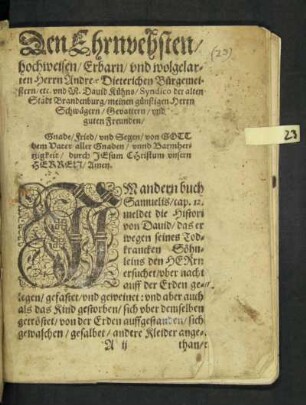 Den Ehrnvehsten/
hochweisen/ Erbarn/ vnd wolgelar-
ten Herrn Andreæ Dieterichen Bürgemei-
stern/ etc. vnd M. David Kühns/ Syndico der alten
Stadt Brandenburg/ meinen günstigen Herrn
Schwägern/ Gevattern/ vnd
guten Freunden/
(23)
23
Gnade/ Fried/ vnd Segen/ von GOTT
dem Vater aller Gnaden/ vnnd Barmher-
tzigkeit/ durch JEsum CHristum vnsern
HERREN/ Amen.
IM andern buch
Samuelis/ cap. 12.
meldet die Histori
von David/ das er
wegen seines Tod-
krancken Söhn-
leins den HERrn
ersuchet/ vber nacht
auff der Erden ge-
legen/ gefastet/ vnd geweinet: vnd aber auch
als das Kind gestorben/ sich vber demselben
getröstet/ von der Erden auffgestanden/ sich
gewaschen/ gesalbet/ andere Kleider ange-
A ij
than/